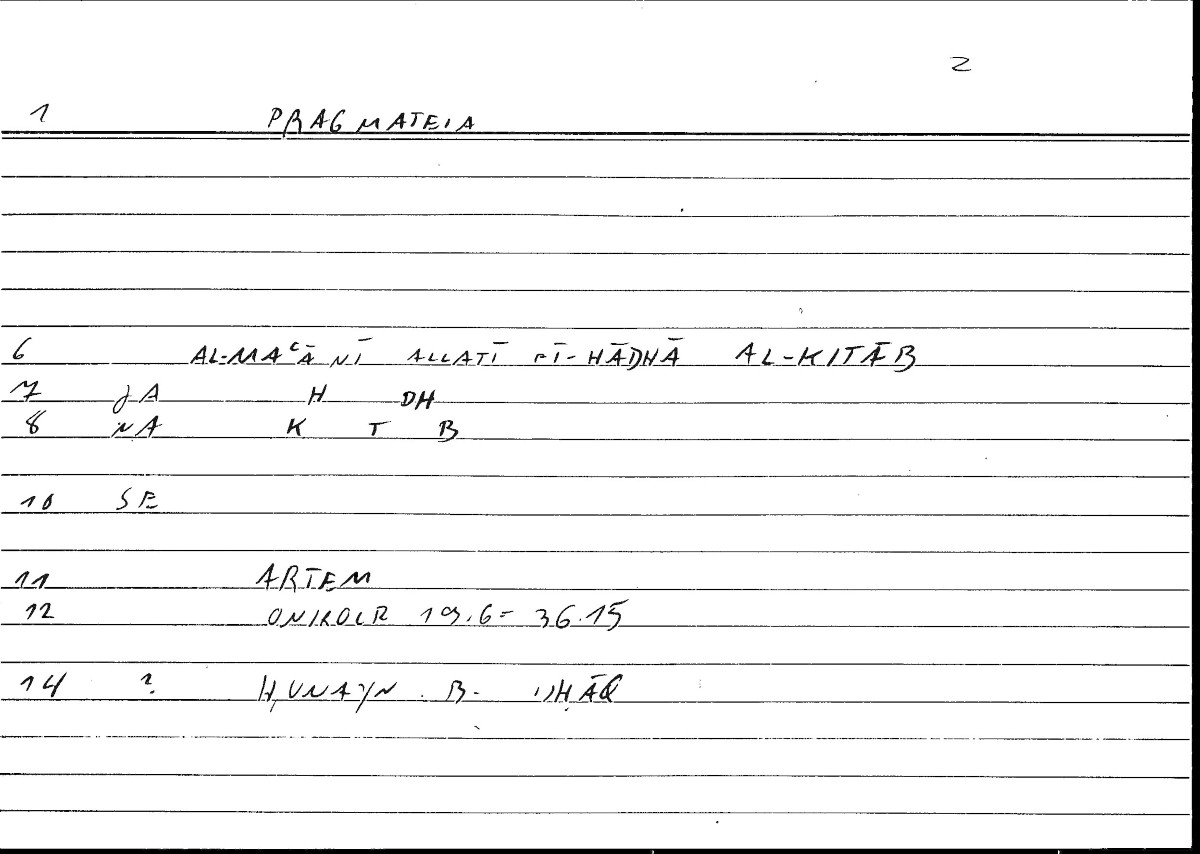 2
1 PRAGMATEIA
6 AL-MAʿĀNĪ ALLATĪ FĪ-HĀDHĀ AL-KITĀB
7 JA H DH
8 NA K T B
10 SE
11 ARTEM
12 ONIROCR 19.6 = 36.15
14 ? ḤUNAYN B. ISḤĀQ